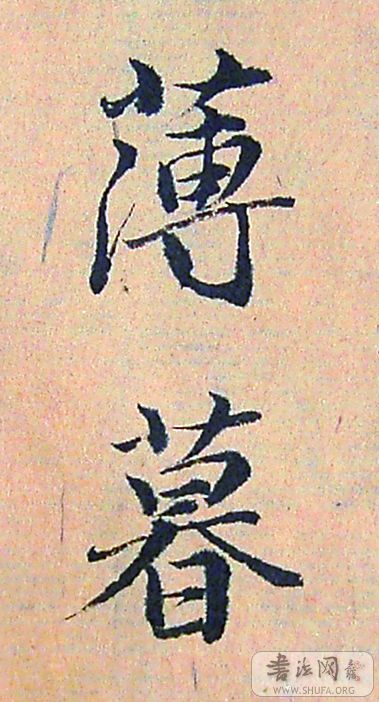 薄暮
书法网
WWW.SHUFA.ORG